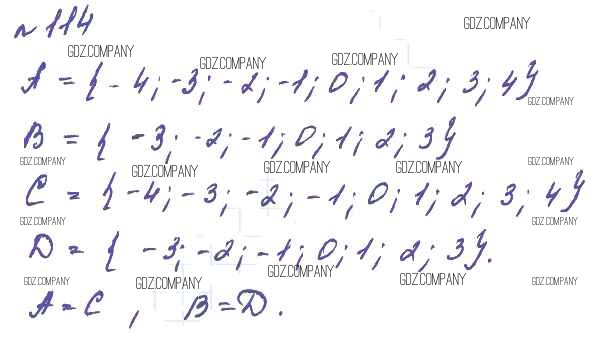 № 114
GDZ.COMPANY
GDZ.COMPANY GDZ.COMPANY GDZ.COMPANY
A = { -4; -3; -2; -1; 0; 1; 2; 3; 4}
GDZ.COMPANY
B = { -3; -2; -1; 0; 1; 2; 3}
GDZ.COMPANY GDZ.COMPANY GDZ.COMPANY GDZ.COMPANY GDZ.COMPANY
C = { -4; -3; -2; -1; 0; 1; 2; 3; 4}
GDZ.COMPANY GDZ.COMPANY
D = { -3; -2; -1; 0; 1; 2; 3}.
GDZ.COMPANY GDZ.COMPANY GDZ.COMPANY GDZ.COMPANY GDZ.COMPANY
A = C , B = D.